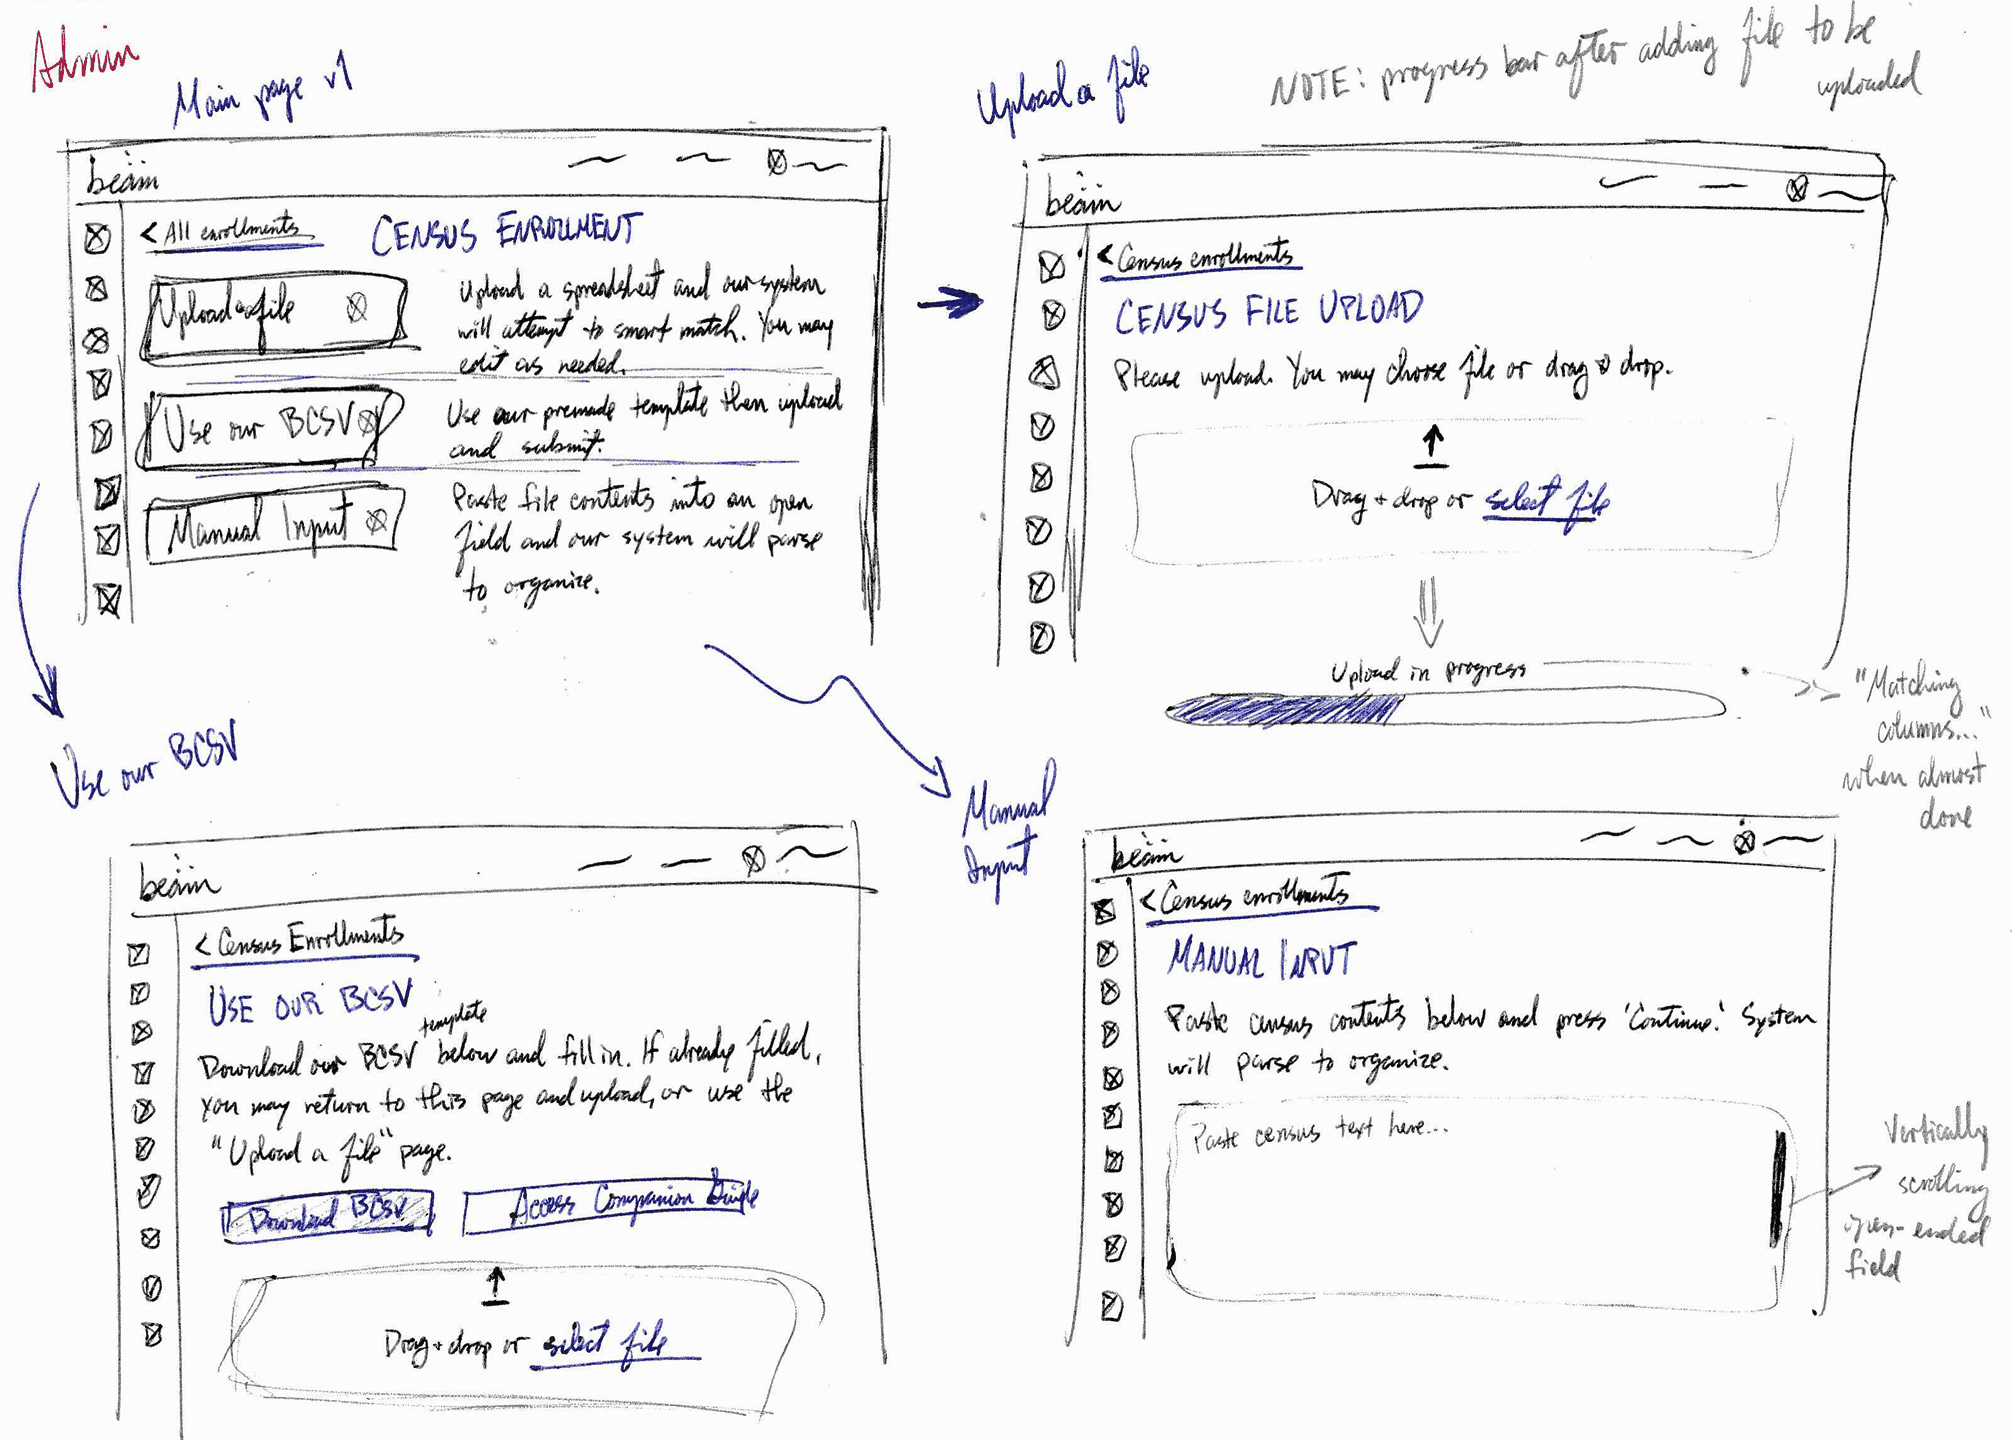 Admin
Main page v1
beam
< All enrollments
CENSUS ENROLLMENT
Upload a file
Upload a spreadsheet and our system
will attempt to smart match. You may
edit as needed.
Use our BCSV
Use our premade template then upload
and submit.
Manual Input
Paste file contents into an open
field and our system will parse
to organize.
Upload a file
NOTE: progress bar after adding file to be
uploaded
beam
< Census enrollments
CENSUS FILE UPLOAD
Please upload. You may choose file or drag & drop.
Drag + drop or select file
Upload in progress
"Matching
columns..."
when almost
done
Use our BCSV
beam
< Census Enrollments
USE OUR BCSV
template
Download our BCSV below and fill in. If already filled,
you may return to this page and upload, or use the
"Upload a file" page.
Download BCSV
Access Companion Guide
Drag + drop or select file
Manual
Input
beam
< Census enrollments
MANUAL INPUT
Paste census contents below and press 'Continue.' System
will parse to organize.
Paste census text here...
Vertically
scrolling
open-ended
field